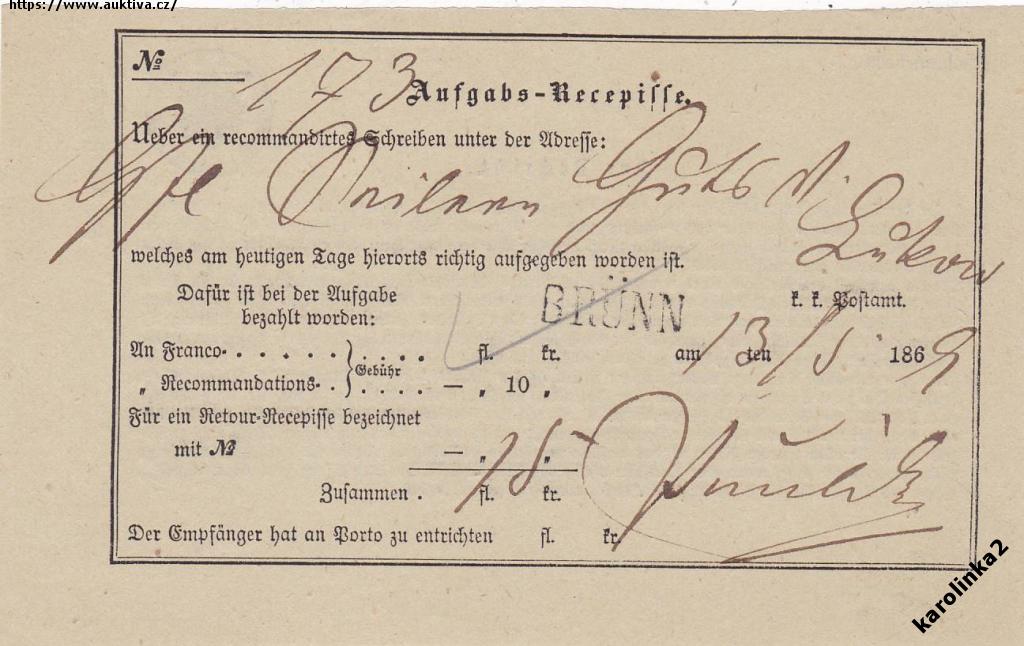 https://www.auktiva.cz/
№ 173
Aufgabs-Recepisse.
Ueber ein recommandirtes Schreiben unter der Adresse:
Seilern Guts
Lukow
welches am heutigen Tage hierorts richtig aufgegeben worden ist.
Dafür ist bei der Aufgabe
bezahlt worden:
BRÜNN
k. k. Postamt.
An Franco. . . . . . } . . . . fl. kr.
Gebühr
am 13 ten /5 1869
„ Recommandations. . } . . . . — „ 10 „
Für ein Retour-Recepisse bezeichnet
mit № — „ „
Zusammen . fl. 15 kr.
Der Empfänger hat an Porto zu entrichten fl. kr.
karolinka2